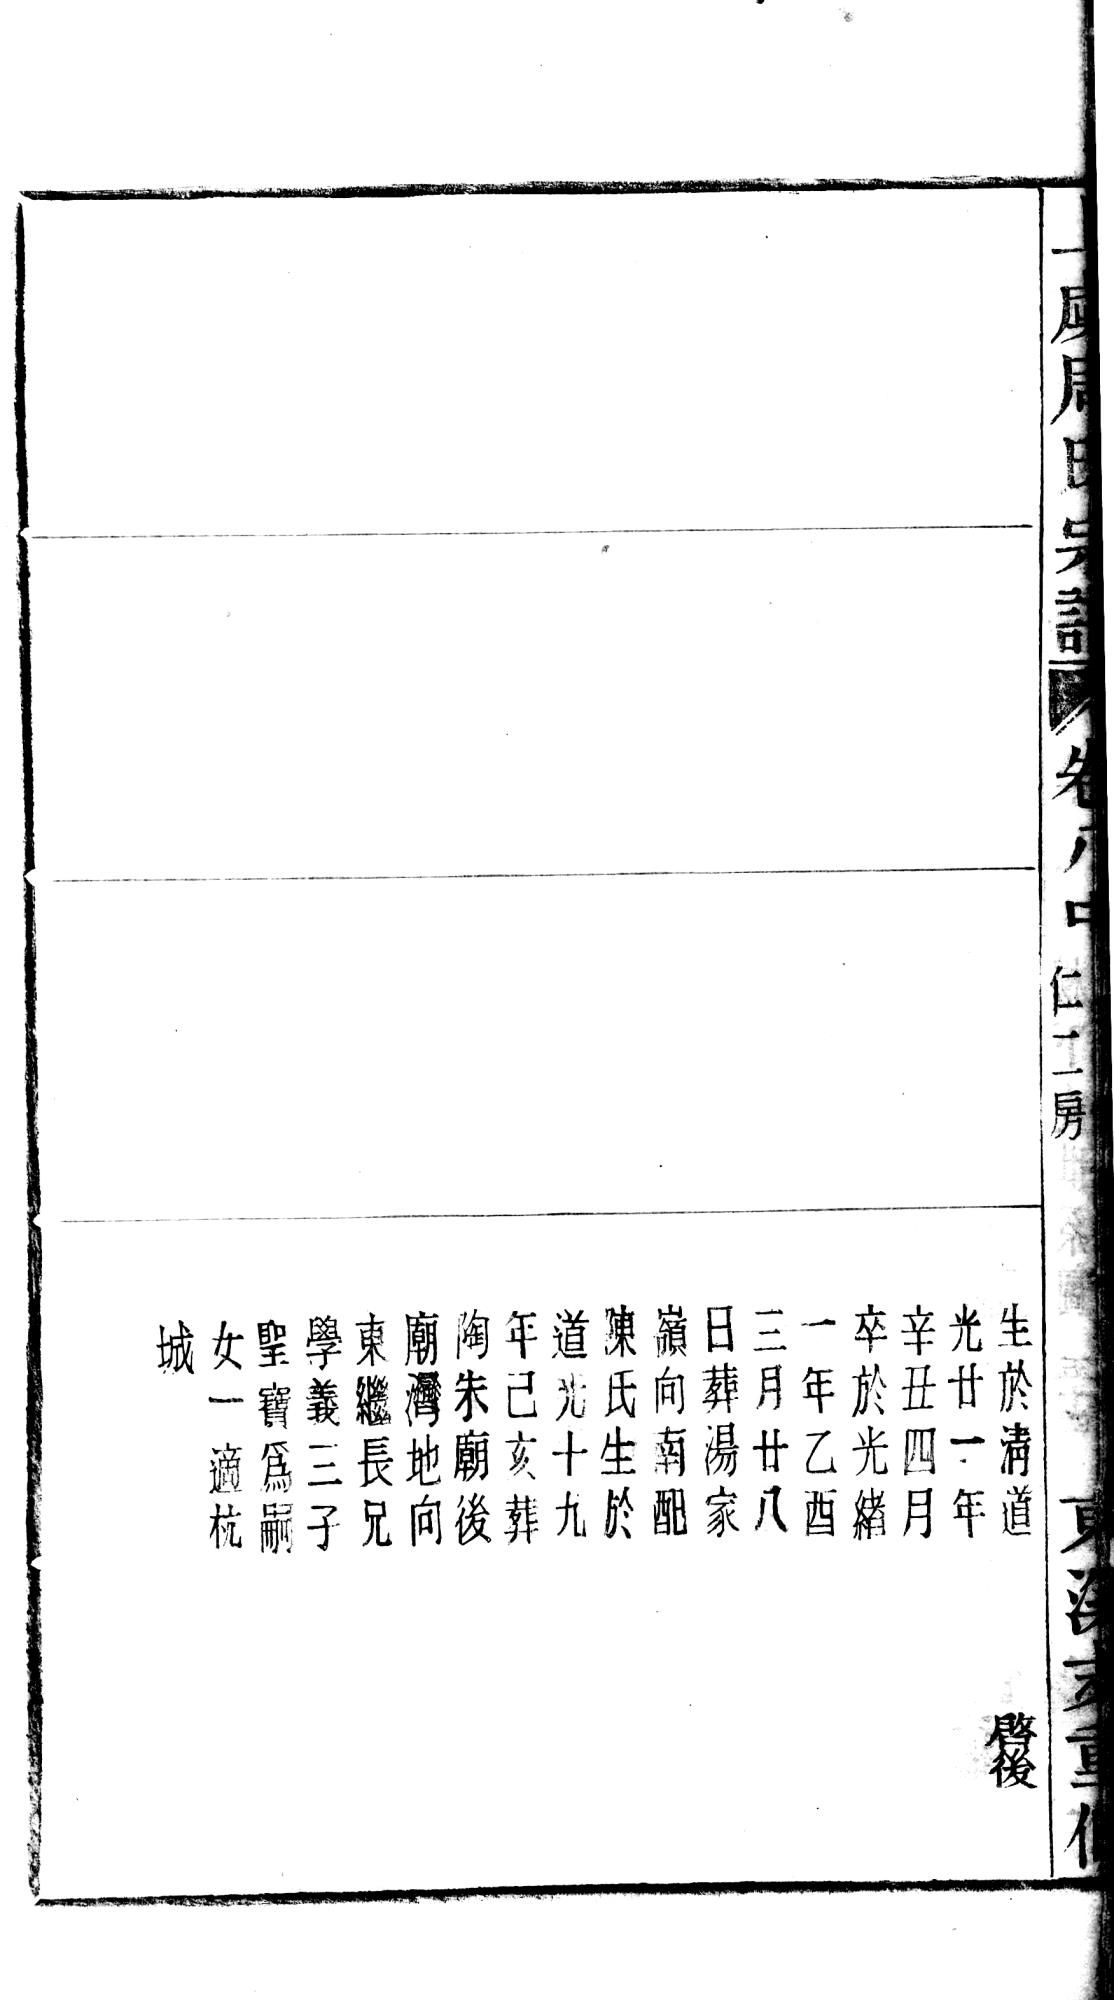 周氏宗譜 卷八中 仁二房
生於淸道
光廿一年
辛丑四月
卒於光緖
一年乙酉
三月廿八
日葬湯家
嶺向南配
陳氏生於
道光十九
年己亥葬
陶朱廟後
廟灣地向
東繼長兄
學義三子
聖寶爲嗣
女一適杭
城
啓後